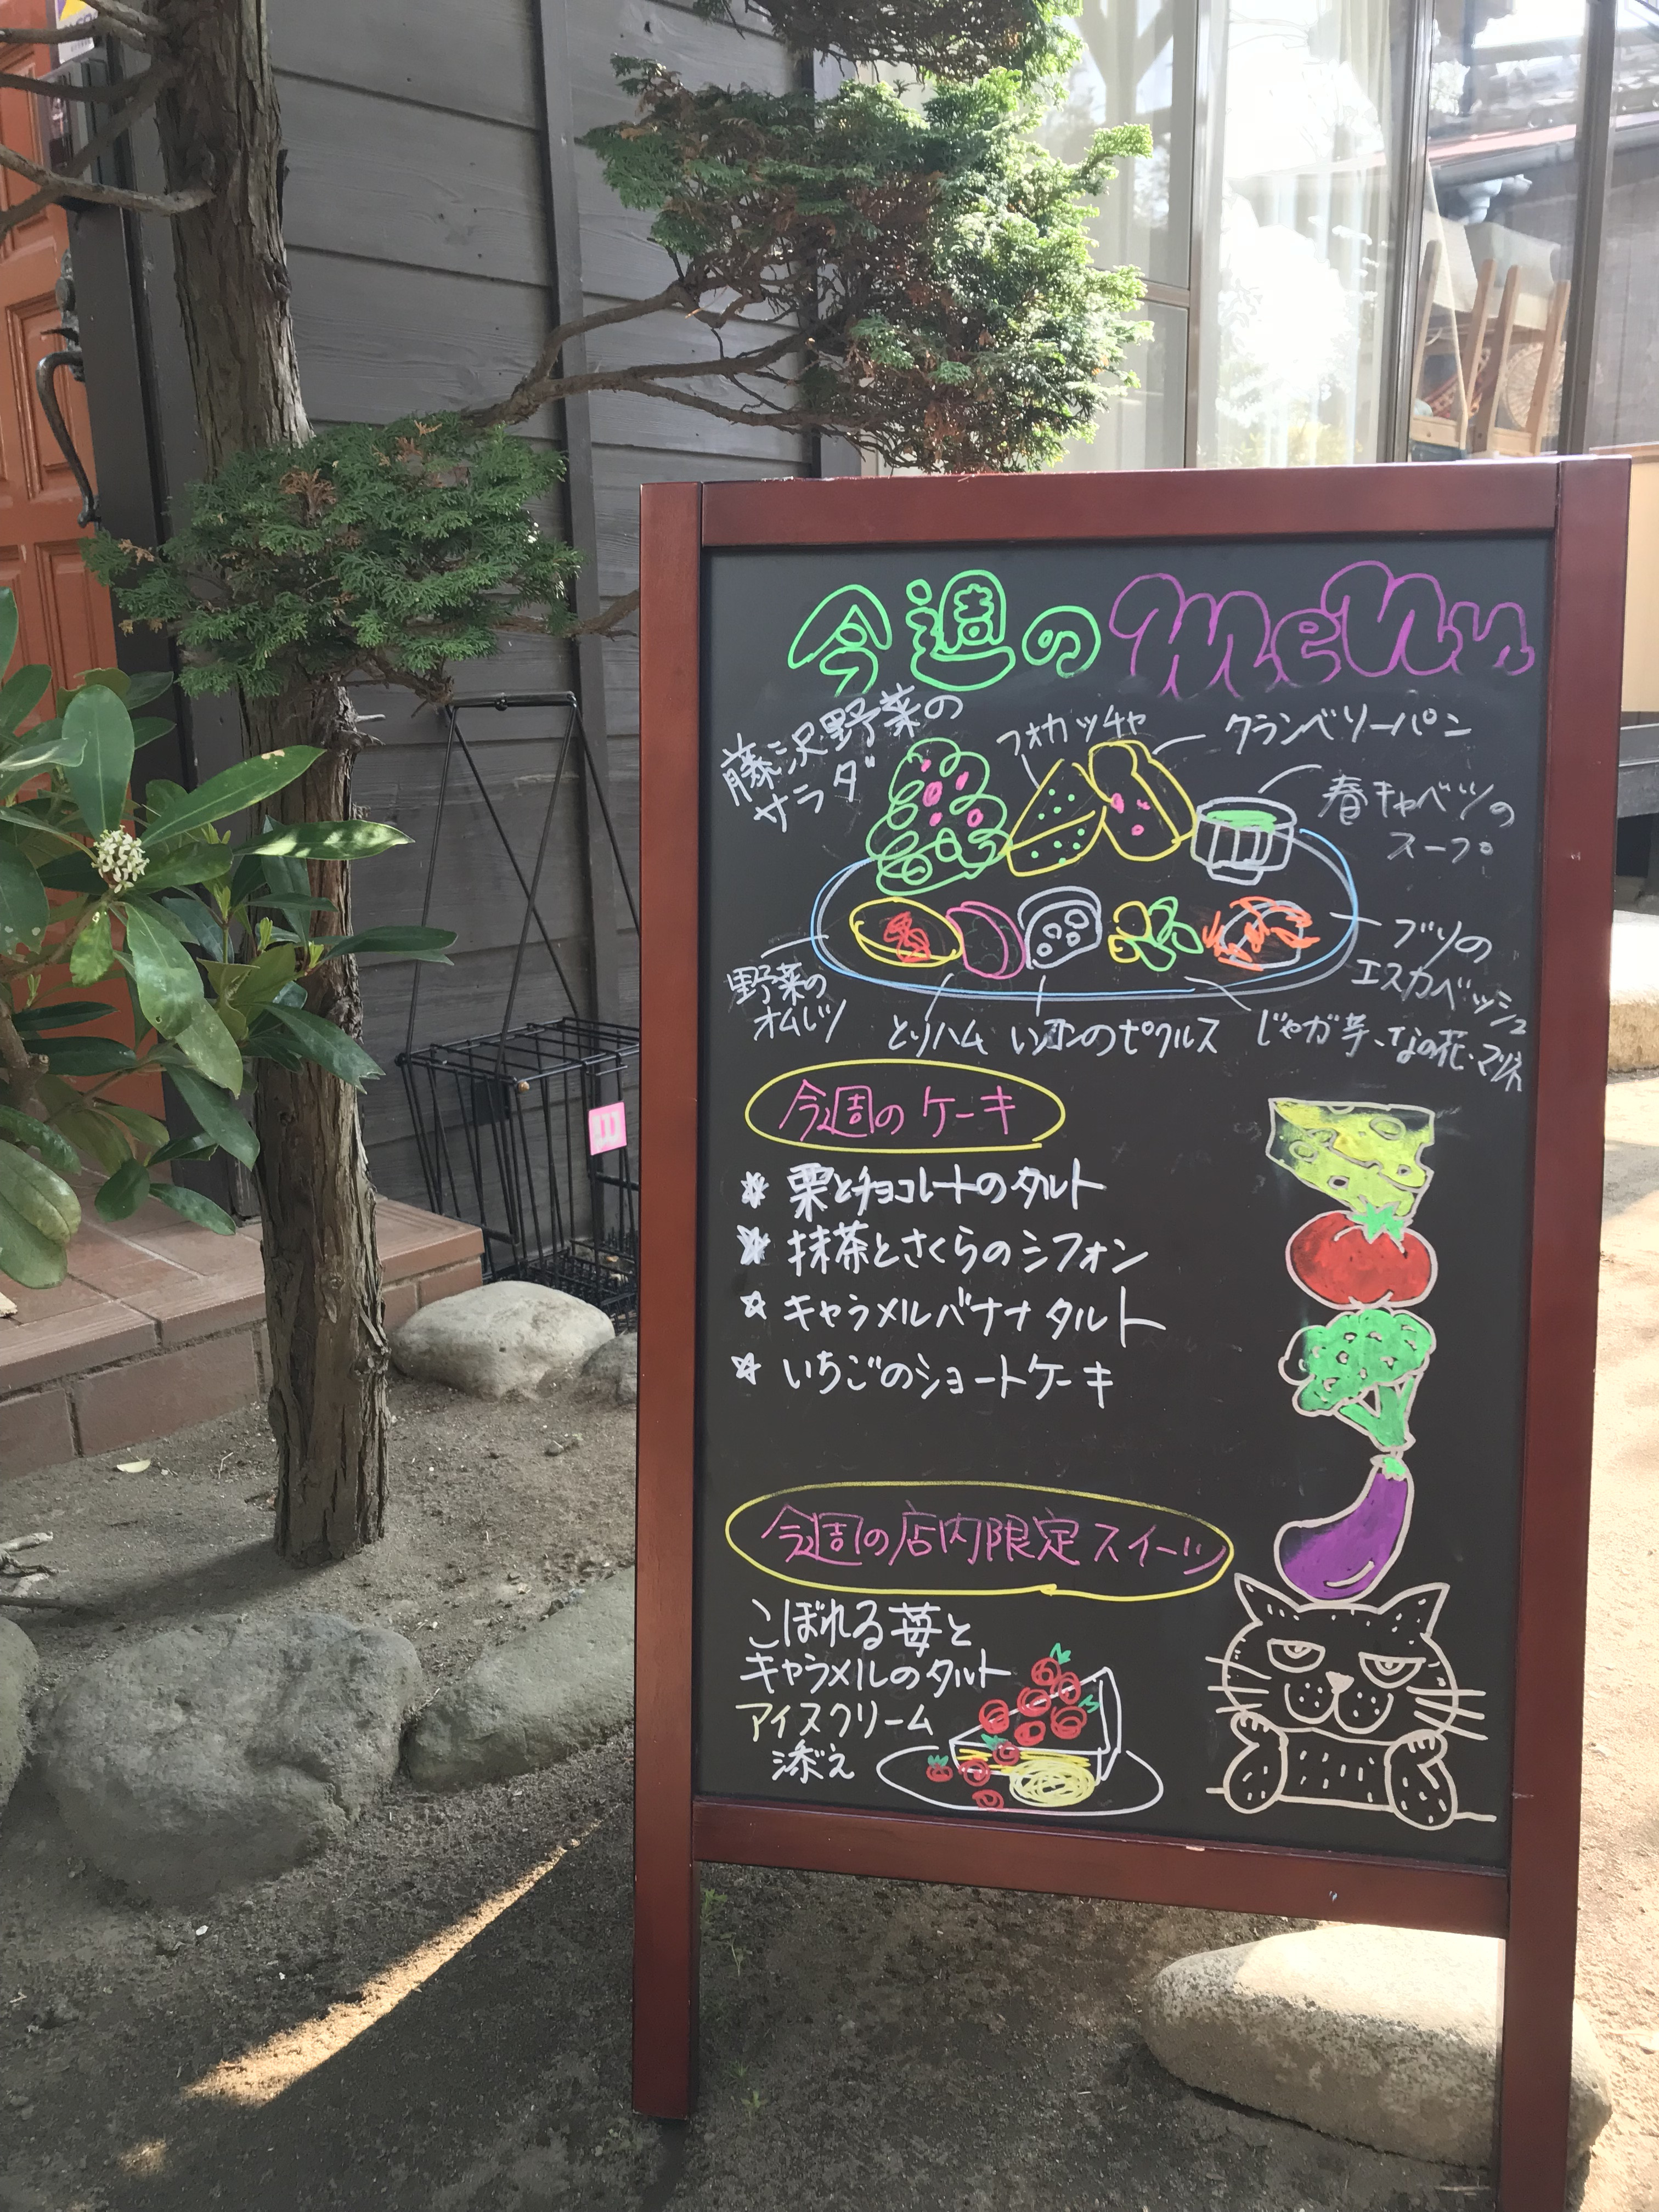 今週のMeNu
藤沢野菜の
サラダ
フォカッチャ
クランベリーパン
春キャベツの
スープ
ブリの
エスカベッシュ
野菜の
オムレツ
とりハム
のピクルス
じゃが芋、なの花、マリネ
今週のケーキ
栗とチョコレートのタルト
抹茶とさくらのシフォン
キャラメルバナナタルト
いちごのショートケーキ
今週の店内限定スイーツ
こぼれる苺と
キャラメルのタルト
アイスクリーム
添え